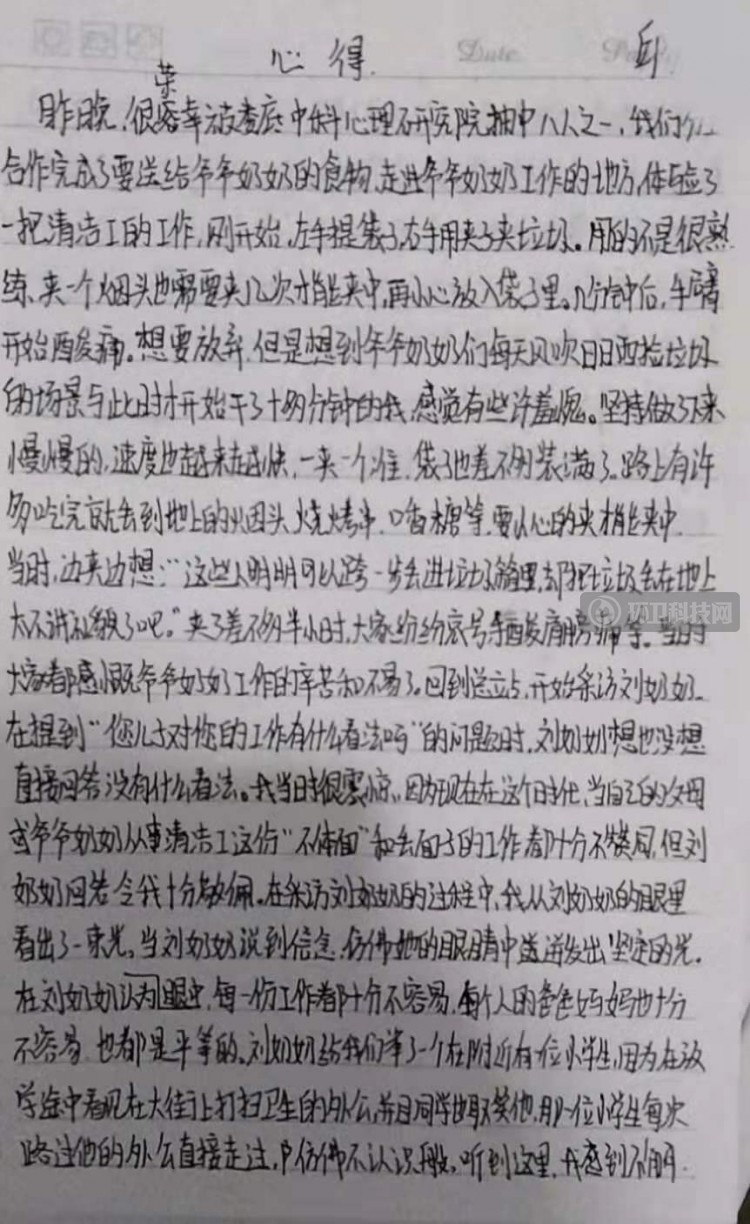 心得.
Date
昨日晚,很荣幸被 中科心理研究院抽中八人之一,我们
合作完成了要送给爷爷奶奶的食物,走进爷爷奶奶工作的地方,体验了
一把清洁工的工作,刚开始,左手提袋子右手用夹子夹垃圾。用的不是很熟
练、夹一个烟头也需要夹几次才能夹中,再小心放入袋子里。几分钟后,手臂
开始酸痛。想要放弃,但是想到爷爷奶奶们每天风吹日晒捡垃圾
的场景与此时才开始干了十多分钟的我,感觉有些许羞愧。坚持做了下来
慢慢的,速度也越来越快,一夹一个准,袋子也差不多装满了。路上有许
多吃完就丢到地上的烟头,烧烤串,口香糖等,要 心的夹才能夹中,
当时,边夹边想:“这些人明明可以跨一步丢进垃圾箱里,却把垃圾丢在地上
太不讲 了吧。”夹了差不多半小时,大家纷纷哀号手酸肩膀痛等。当时
大家都感慨爷爷奶奶工作的辛苦和不易。回到 立点,开始采访刘奶奶
在提到“您儿子对您的工作有什么看法吗”的问题时,刘奶奶想也没想
直接回答没有什么看法。我当时很震惊,因为现在在这个时代,当自己的父母
或爷爷奶奶从事清洁工这份“不体面”和丢面子的工作都十分不赞同,但刘
奶奶回答令我十分敬佩。在采访刘奶奶的过程中,我从刘奶奶的眼里
看出了一束光。当刘奶奶说到信念,仿佛她的眼睛中迸发出坚定的光.
在刘奶奶认为眼中,每一份工作都十分不容易,每个人的爸爸妈妈也十分
不容易,也都是平等的。刘奶奶给我们举了一个在附近有一位小学生,因为在放
学途中看见在大街上打扫卫生的外公,并且同学嘲笑他,那一位小学生每次
路过他的外公直接走过,仿佛不认识般。听到这里,我感到不明
环卫科技网